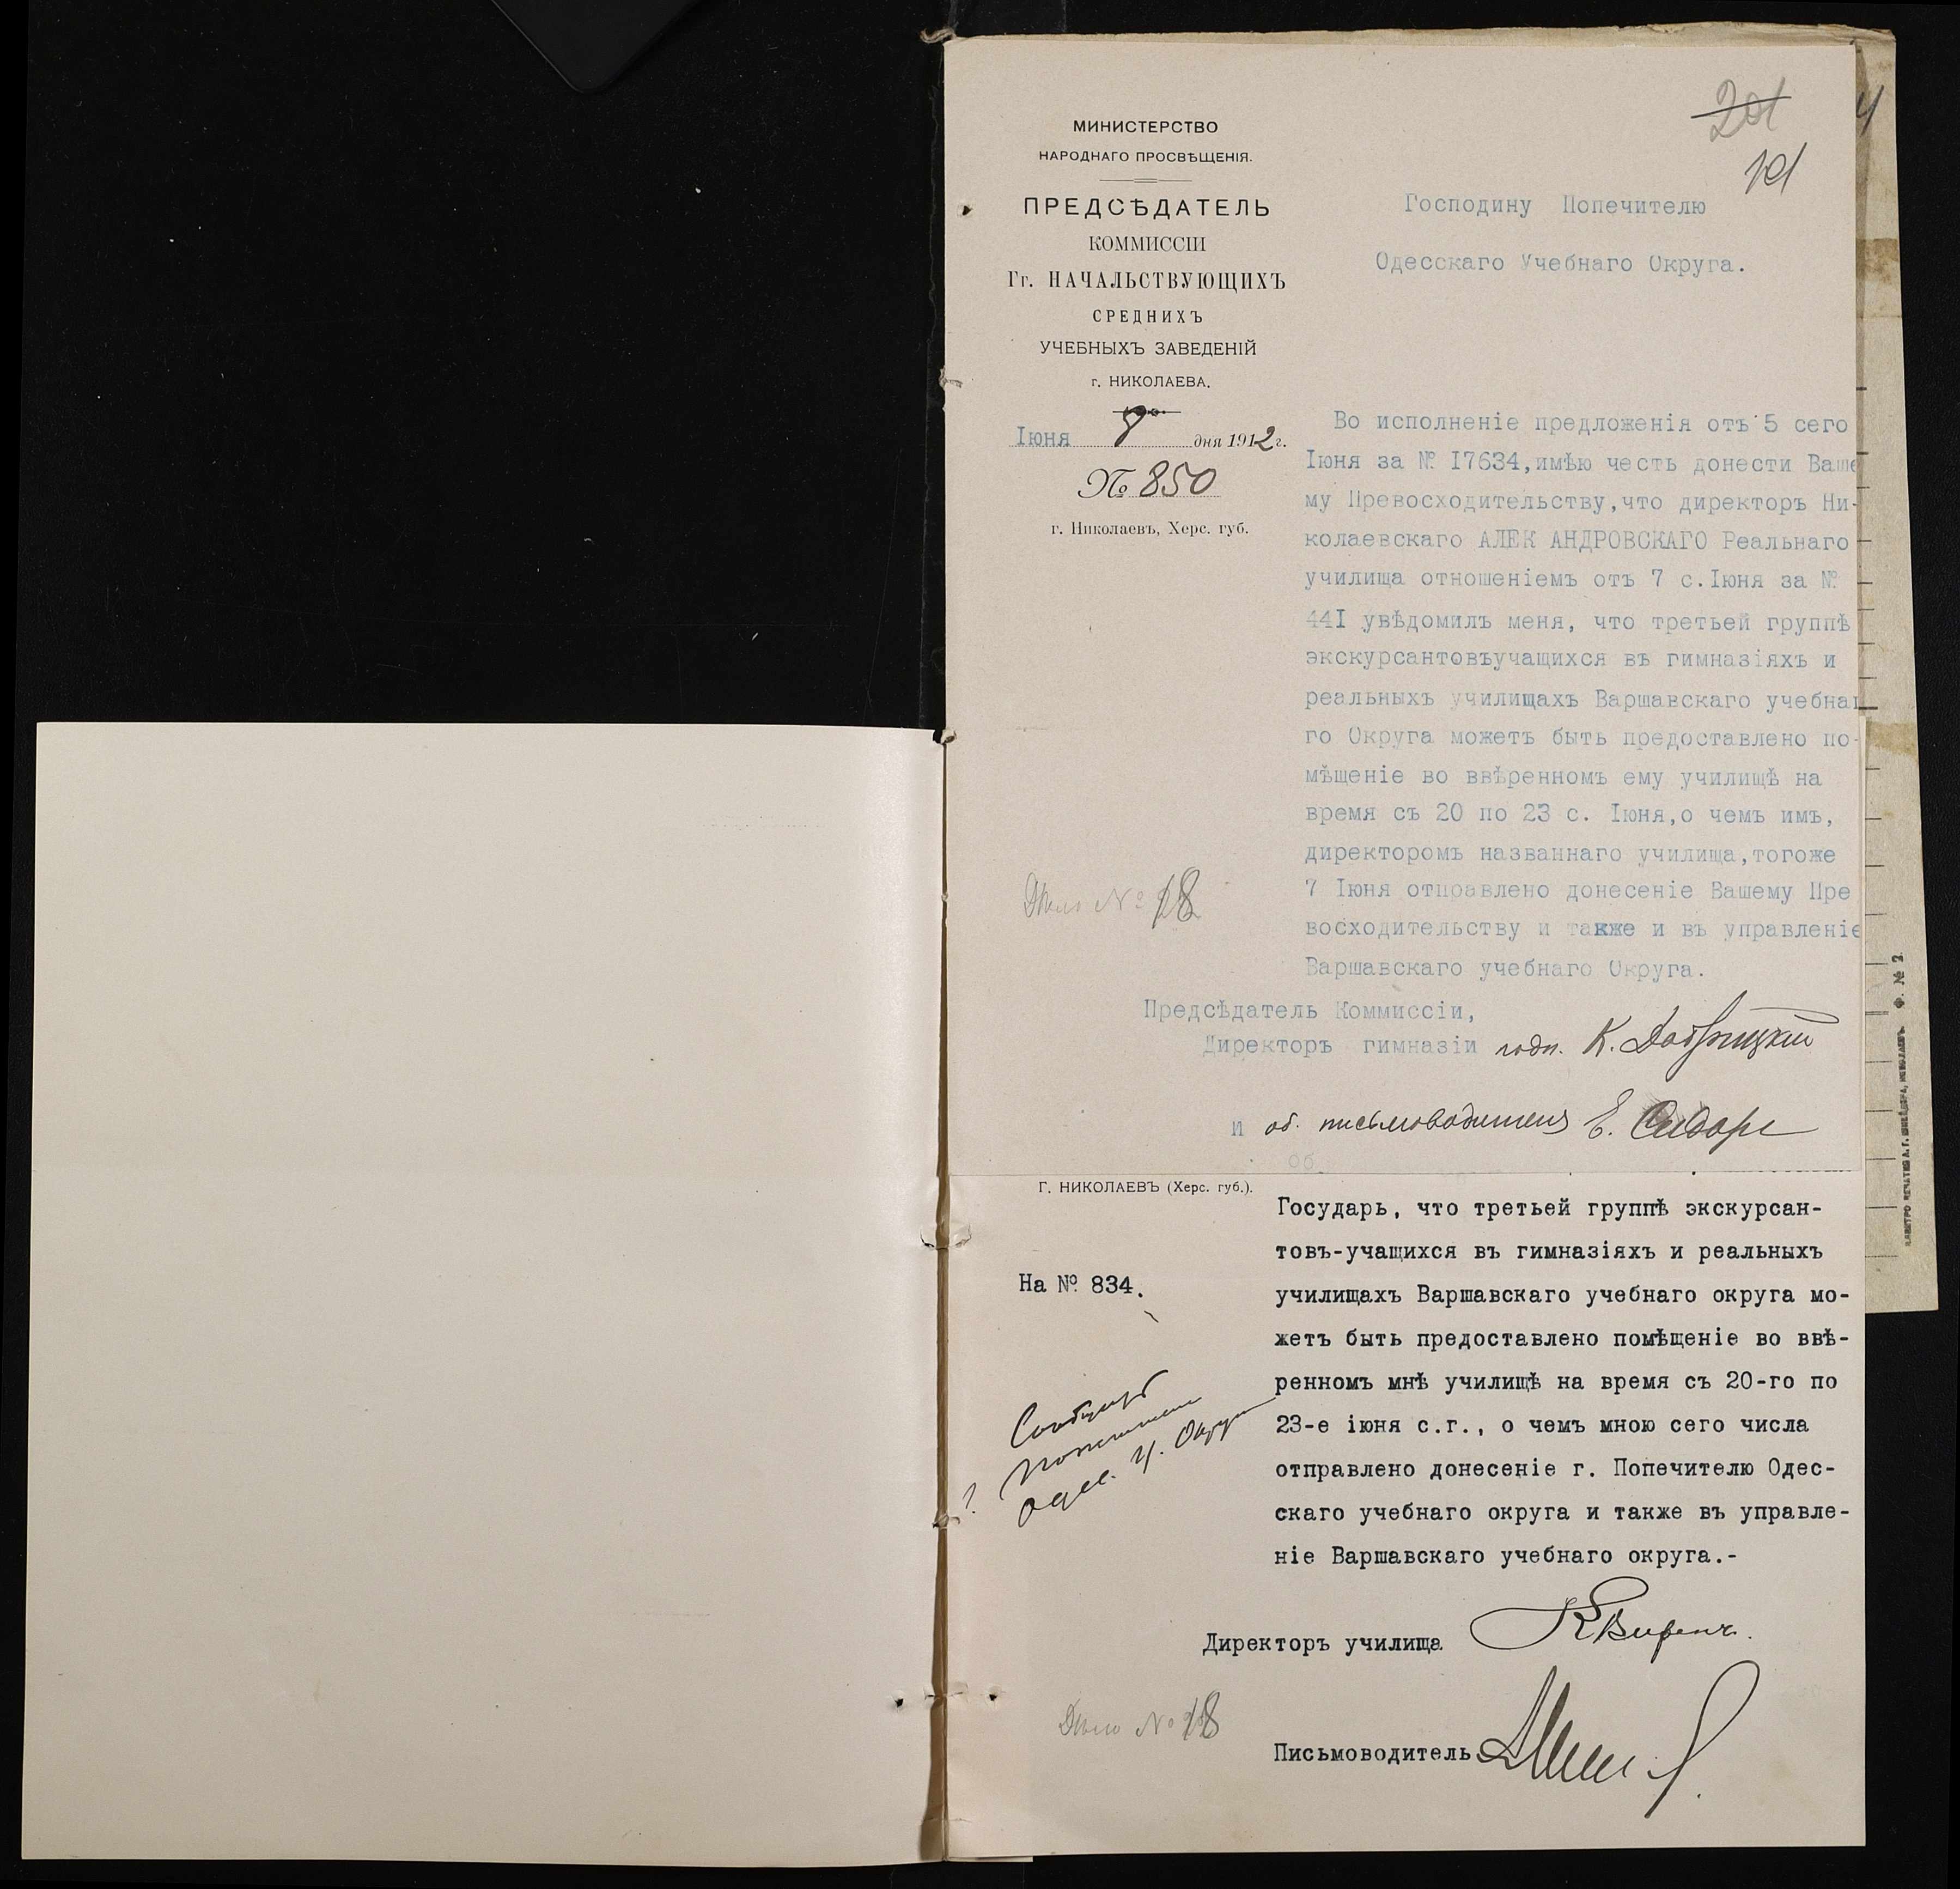 201
101
МИНИСТЕРСТВО
НАРОДНАГО ПРОСВѢЩЕНІЯ.
ПРЕДСѢДАТЕЛЬ
КОММИССІИ
Гг. НАЧАЛЬСТВУЮЩИХЪ
СРЕДНИХЪ
УЧЕБНЫХЪ ЗАВЕДЕНІЙ
г. НИКОЛАЕВА.
Іюня 8 дня 1912 г.
№ 850
г. Николаевъ, Херс. губ.
Господину Попечителю
Одесскаго Учебнаго Округа.
Во исполненіе предложенія отъ 5 сего
Іюня за № I7634,имѣю честь донести Ваше
му Превосходительству,что директоръ Ни-
колаевскаго АЛЕК АНДРОВСКАГО Реальнаго
училища отношеніемъ отъ 7 с.Іюня за №
44I увѣдомилъ меня, что третьей группѣ
экскурсантовъучащихся въ гимназіяхъ и
реальныхъ училищахъ Варшавскаго учебна
го Округа можетъ быть предоставлено по-
мѣщеніе во ввѣренномъ ему училищѣ на
время съ 20 по 23 с. Іюня,о чемъ имъ,
директоромъ названнаго училища,тогоже
7 Іюня отправлено донесеніе Вашему Пре
восходительству и также и въ управленіе
Варшавскаго учебнаго Округа.
Дѣло № 18
Предсѣдатель Коммиссіи,
Директоръ гимназіи подп. К. Добрицкій
И об. письмоводителя Е. Сидоре
об.
Г. НИКОЛАЕВЪ (Херс. губ.).
На № 834.
Сообщить
Попечителю
Одес. У. Округа
Государь, что третьей группѣ экскурсан-
товъ-учащихся въ гимназіяхъ и реальныхъ
училищахъ Варшавскаго учебнаго округа мо-
жетъ быть предоставлено помѣщеніе во ввѣ-
ренномъ мнѣ училищѣ на время съ 20-го по
23-е іюня с.г., о чемъ мною сего числа
отправлено донесеніе г. Попечителю Одес-
скаго учебнаго округа и также въ управле-
ніе Варшавскаго учебнаго округа.-
Директоръ училища
Дѣло № 18
Письмоводитель
Ф. № 2.